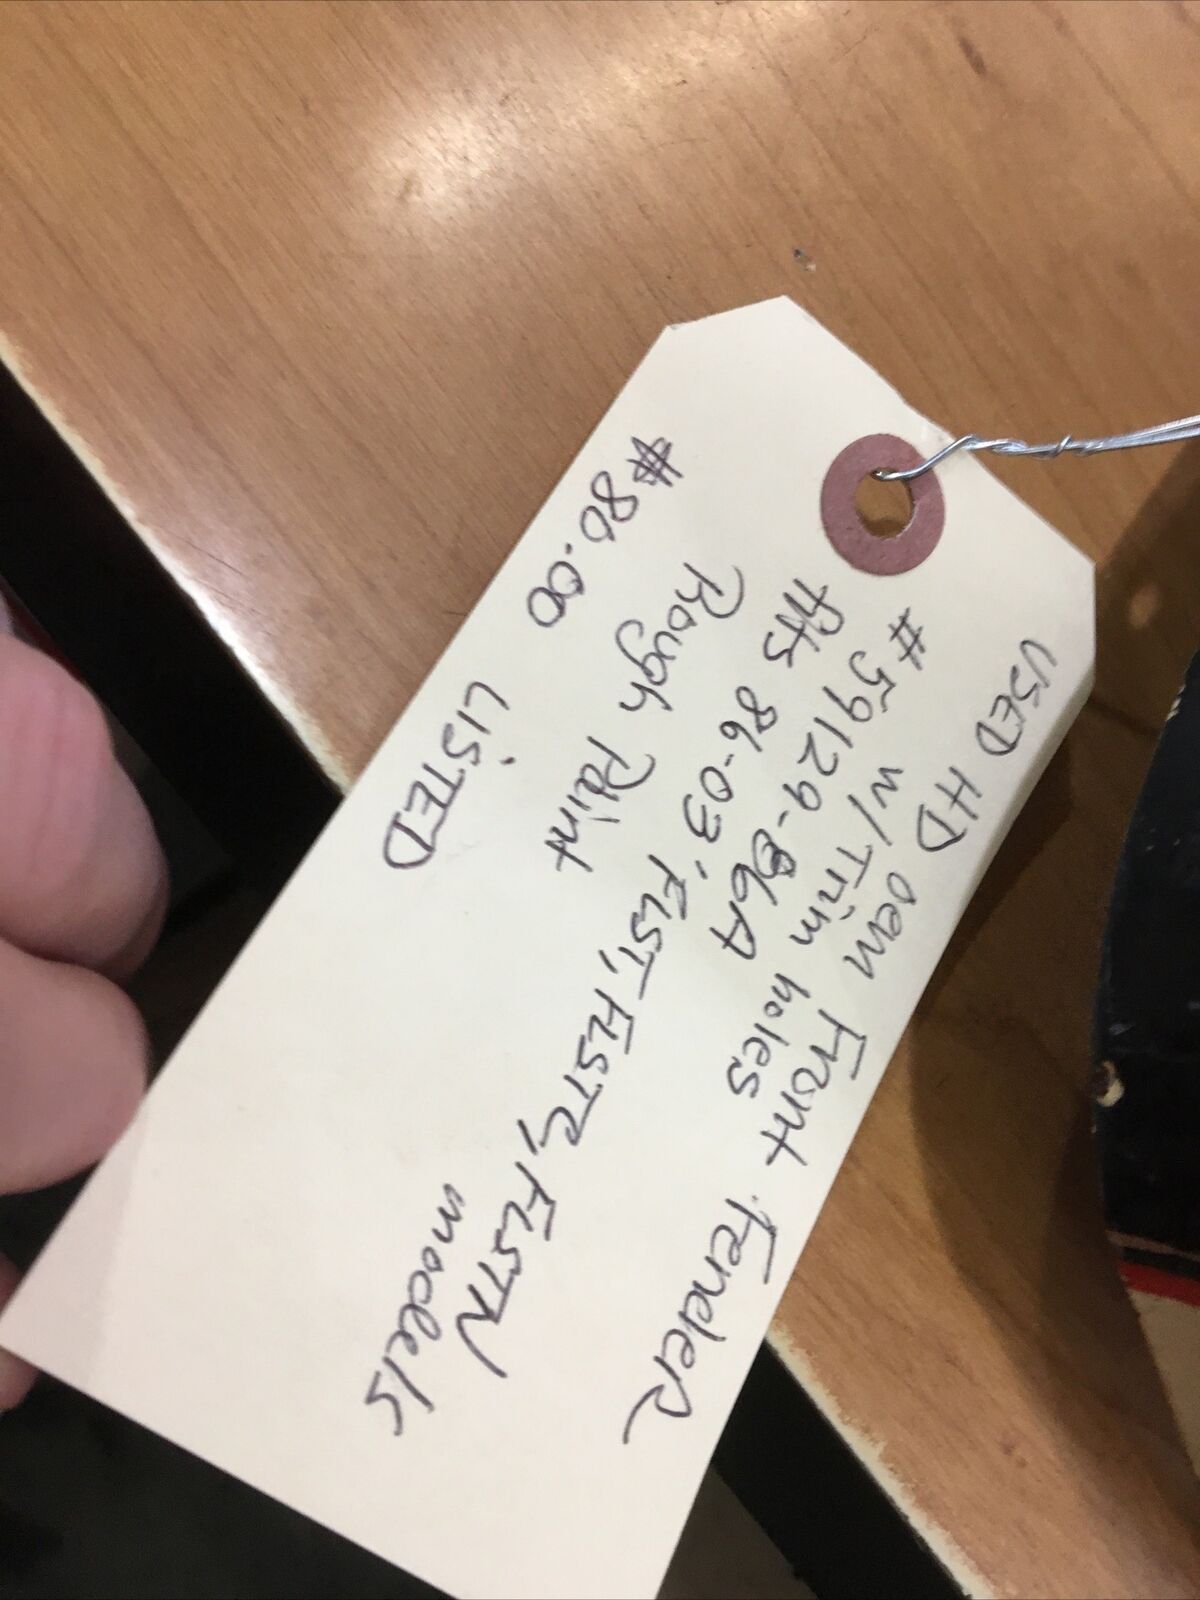 USED HD oem Front FendeR
#59129-86A w/Trim holes
fits 86-03' FLST, FLSTC, FLSTN
models
Rough Paint
$80.00 LISTED